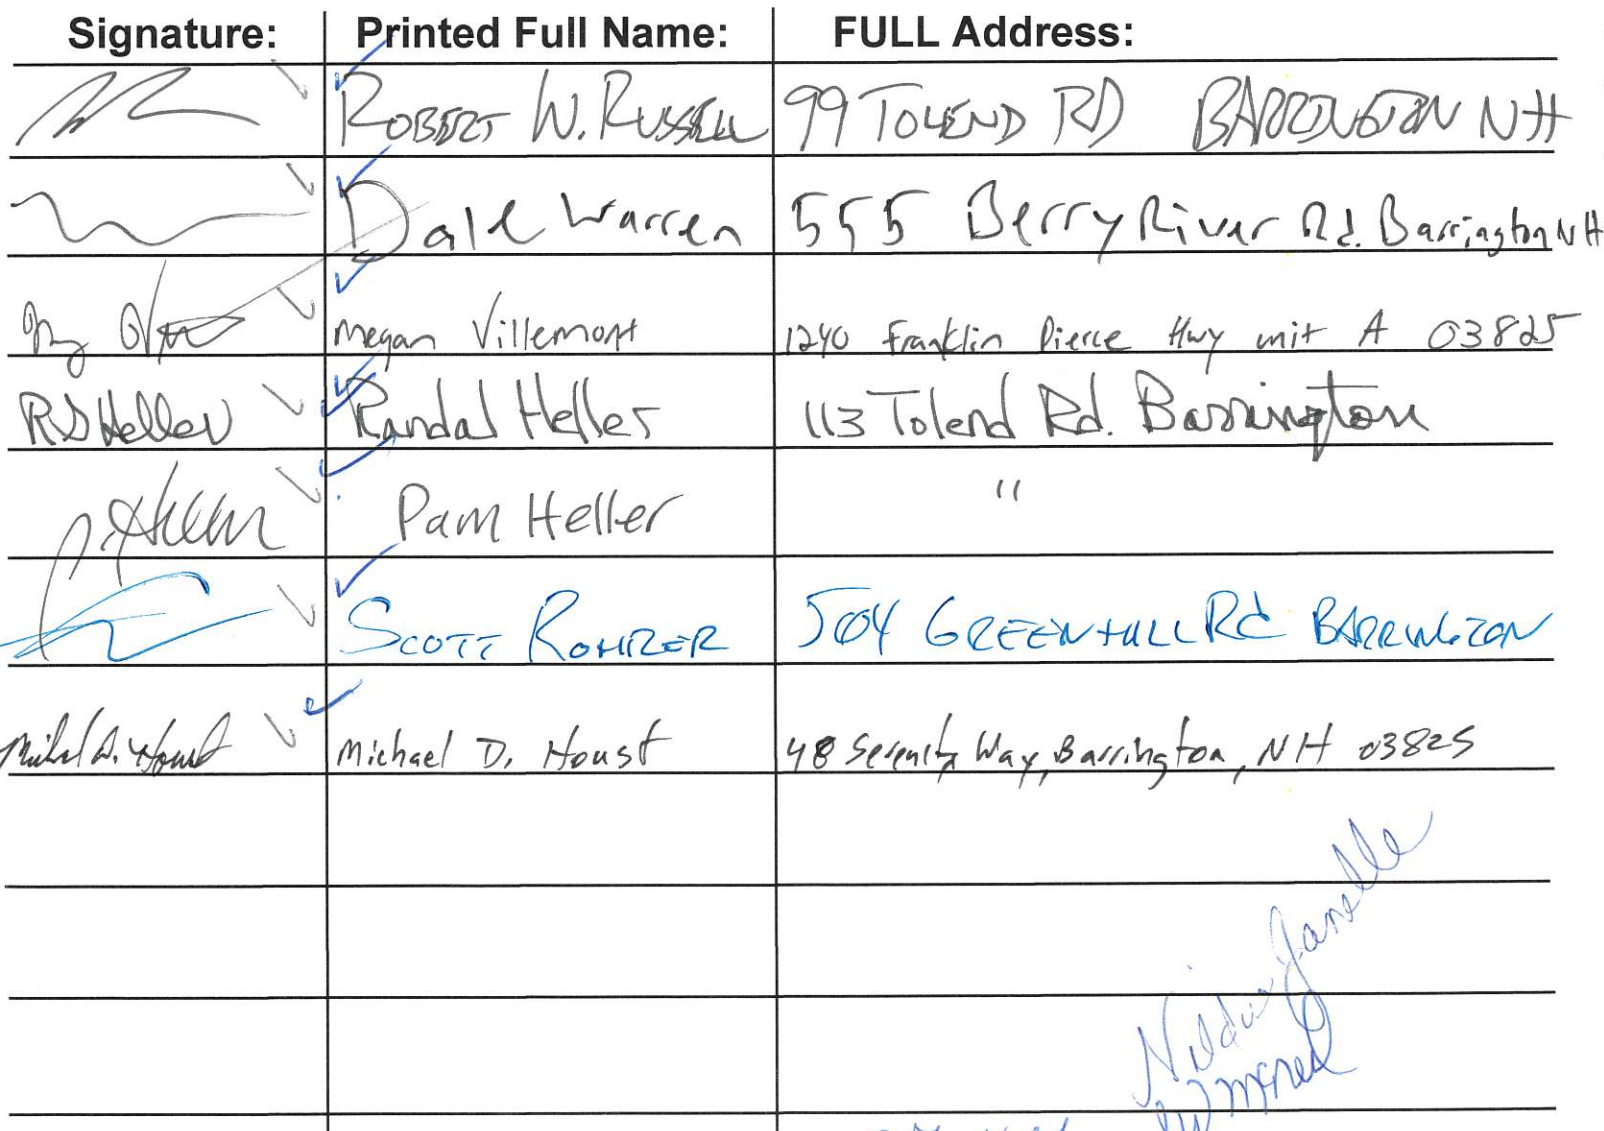 Signature: Printed Full Name: FULL Address:
ROBERT W. RUSSELL 99 TOLEND RD BARRINGTON NH
Dale Warren 555 Berry River Rd. Barrington NH
Megan Villemont 1240 Franklin Pierce Hwy unit A 03825
RS Heller Randal Heller 113 Tolend Rd. Barrington
P. Heller Pam Heller "
SCOTT ROHRER 504 GREENHILL Rd BARRINGTON
Michael D. Houst Michael D. Houst 48 Serenity Way, Barrington, NH 03825
Janelle